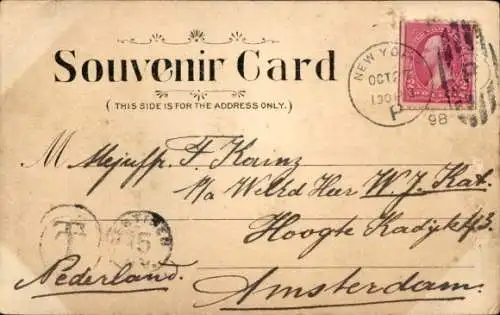 Souvenir Card
(THIS SIDE IS FOR THE ADDRESS ONLY.)
NEW YORK
OCT 2
190
P
98
Mejuffr. F. Kainz
p/a Wel. Heer W. J. Kat.
Hoogte Kadijk
T
15
Nederland.
Amsterdam.